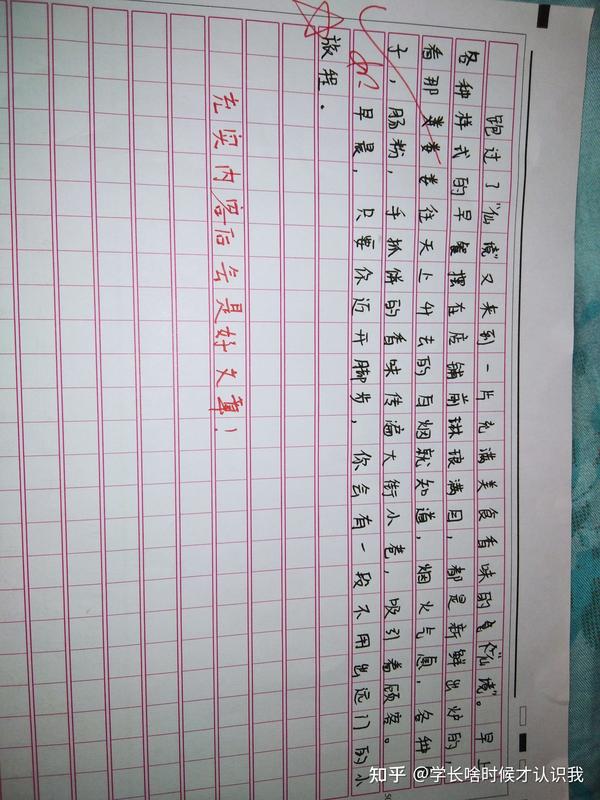 跑过了“仙境”又来到一片充满美食香味的“仙境”。早上
各种样式的早餐摆在店铺前琳琅满目,都是新鲜出炉的,
看那娄娄往天上升去的白烟就知道,烟火气息,各种
子,肠粉,手抓饼的香味传遍大街小巷,吸引着顾客。
早晨,只要你迈开脚步,你会有一段不用出远门的小
旅程。
充实内容后会是好文章!
知乎 @学长啥时候才认识我